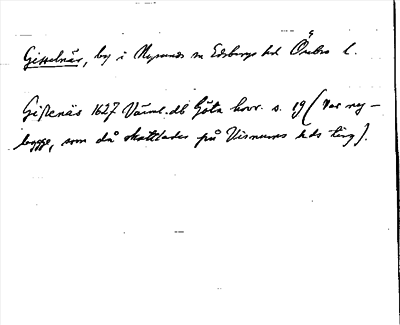 Gisselnäs, by i Nysunds sn Edsbergs hd Örebro l.
Gissenäs 1627 Värml.db Göta hovr. s. 19 (var ny-
bygge, som då skattlades på Visnums hds ting).